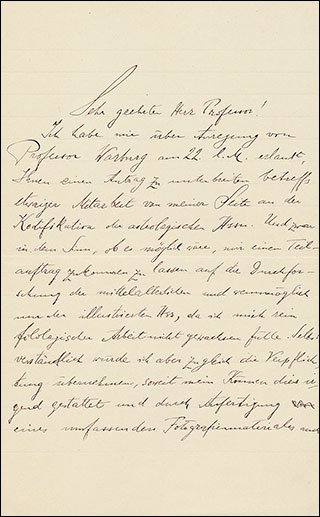 Sehr geehrter Herr Professor!
Ich habe mir über Anregung von
Professor Warburg am 22. l. M. erlaubt,
Ihnen einen Antrag zu unterbreiten betreffs
etwaiger Mitarbeit von meiner Seite an der
Kodifikation der astrologischen Hssn. Und zwar
in dem Sinn, ob es möglich wäre, mir einen Teil-
auftrag zukommen zu lassen auf die Durchfor-
schung der mittelalterlichen und womöglich
nur der illustrierten Hss, da ich mich rein
filologischer Arbeit nicht gewachsen fühle. Selbst
verständlich würde ich aber zugleich die Verpflich
tung übernehmen, soweit mein Können dies ir
gend gestattet und durch Anfertigung
eines umfassenden Fotografienmateriales auch